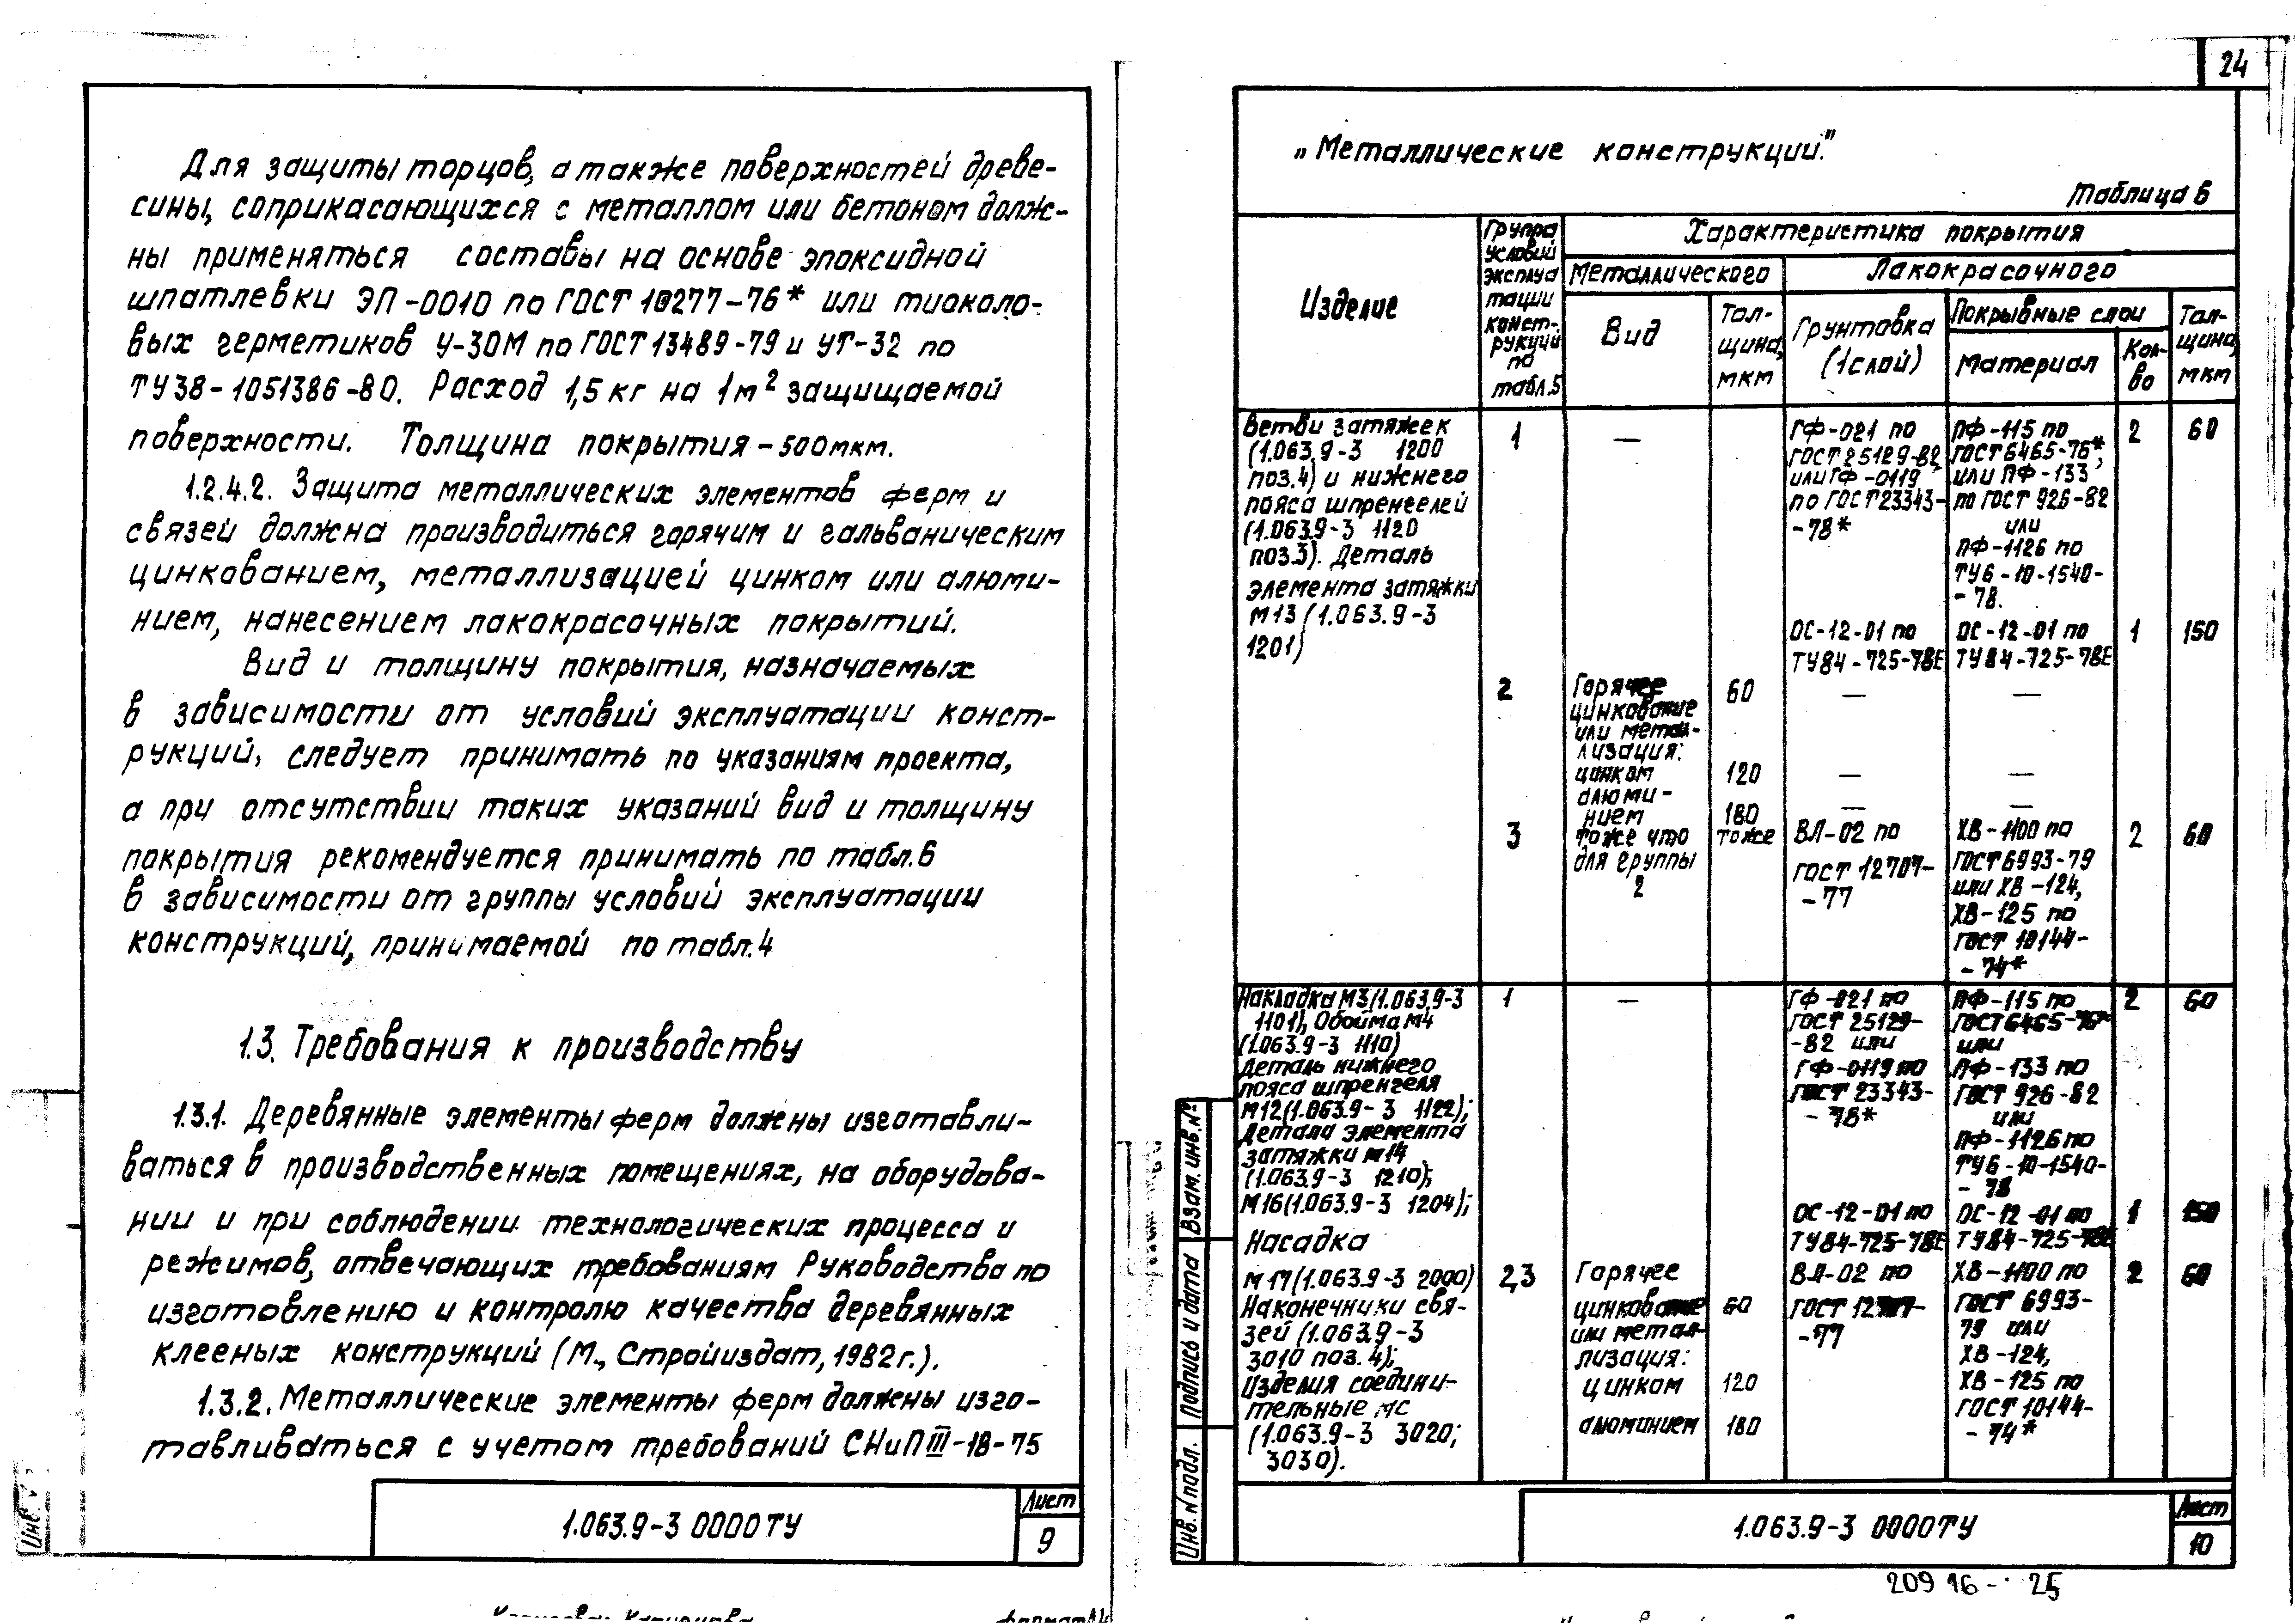 24
Для защиты торцов, а также поверхностей древе-
сины, соприкасающихся с металлом или бетоном долж-
ны применяться составы на основе эпоксидной
шпатлевки ЭП-0010 по ГОСТ 10277-76* или тиоколо-
вых герметиков У-30М по ГОСТ 13489-79 и УТ-32 по
ТУ38-1051386-80. Расход 1,5 кг на 1м² защищаемой
поверхности. Толщина покрытия - 500мкм.
1.2.4.2. Защита металлических элементов ферм и
связей должна производиться горячим и гальваническим
цинкованием, металлизацией цинком или алюми-
нием, нанесением лакокрасочных покрытий.
Вид и толщину покрытия, назначаемых
в зависимости от условий эксплуатации конст-
рукций, следует принимать по указаниям проекта,
а при отсутствии таких указаний вид и толщину
покрытия рекомендуется принимать по табл.6
в зависимости от группы условий эксплуатации
конструкций, принимаемой по табл.4
1.3. Требования к производству
1.3.1. Деревянные элементы ферм должны изготавли-
ваться в производственных помещениях, на оборудова-
нии и при соблюдении технологических процесса и
режимов, отвечающих требованиям Руководства по
изготовлению и контролю качества деревянных
клееных конструкций (М., Стройиздат, 1982г.).
1.3.2. Металлические элементы ферм должны изго-
тавливаться с учетом требований СНиП III-18-75
1.063.9-3 0000ТУ
Лист
9
Инв.
„Металлические конструкции."
Таблица 6
Изделие
Группа
условий
эксплуа
тации
конст-
рукций
по
табл.5
Характеристика покрытия
Металлического
Лакокрасочного
Вид
Тол-
щина,
мкм
Грунтовка
(1слой)
Покрывные слои
Материал
Кол-
во
Тол-
щина,
мкм
Ветви затяжек
(1.063.9-3 1200
поз.4) и нижнего
пояса шпренгелей
(1.063.9-3 1120
поз.3). Деталь
элемента затяжки
М13 (1.063.9-3
1201)
1
—
ГФ-021 по
ГОСТ 25129-82
или ГФ-0119
по ГОСТ 23343-
-78*
ПФ-115 по
ГОСТ 6465-76*,
или ПФ-133
по ГОСТ 926-82
или
ПФ-1126 по
ТУ6-10-1540-
-78.
2
60
ОС-12-01 по
ТУ84-725-78Е
ОС-12-01 по
ТУ84-725-78Е
1
150
2
Горячее
цинкование
или метал-
лизация:
цинком
алюми-
нием
60
120
180
—
—
—
—
—
—
3
тоже что
для группы
2
тоже
ВЛ-02 по
ГОСТ 12707-
-77
ХВ-1100 по
ГОСТ 6993-79
или ХВ-124,
ХВ-125 по
ГОСТ 10144-
-74*
2
60
Накладка М3(1.063.9-3
1101), Обойма М4
(1.063.9-3 1110)
Деталь нижнего
пояса шпренгеля
М12(1.063.9-3 1122);
Детали элемента
затяжки М14
(1.063.9-3 1210);
М16(1.063.9-3 1204);
Насадка
М17(1.063.9-3 2000)
Наконечники свя-
зей (1.063.9-3
3010 поз.4);
Изделия соедини-
тельные мс
(1.063.9-3 3020;
3030).
1
—
ГФ-021 по
ГОСТ 25129-
-82 или
ГФ-0119 по
ГОСТ 23343-
-78*
ПФ-115 по
ГОСТ 6465-76*
или
ПФ-133 по
ГОСТ 926-82
или
ПФ-1126 по
ТУ6-10-1540-
-78
2
60
ОС-12-01 по
ТУ84-725-78Е
ОС-12-01 по
ТУ84-725-78Е
1
150
2,3
Горячее
цинкование
или метал-
лизация:
цинком
алюминием
60
120
180
ВЛ-02 по
ГОСТ 12707-
-77
ХВ-1100 по
ГОСТ 6993-
79 или
ХВ-124,
ХВ-125 по
ГОСТ 10144-
-74*
2
60
Взам. инв.№
Подпись и дата
Инв. № подл.
1.063.9-3 0000ТУ
Лист
10
209 16- 25